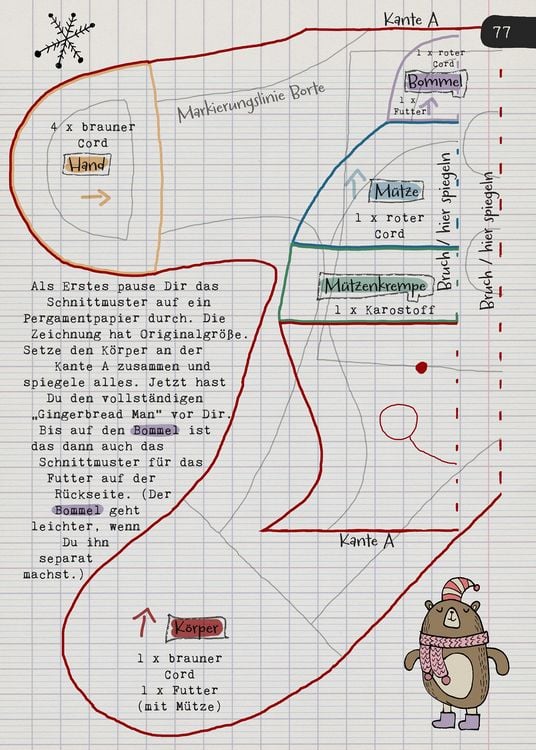 Kante A
77
1 x roter
Cord
Bommel
1 x
Futter
Markierungslinie Borte
4 x brauner
Cord
Hand
Mütze
1 x roter
Cord
Bruch / hier spiegeln
Bruch / hier spiegeln
Mützenkrempe
1 x Karostoff
Als Erstes pause Dir das
Schnittmuster auf ein
Pergamentpapier durch. Die
Zeichnung hat Originalgröße.
Setze den Körper an der
Kante A zusammen und
spiegele alles. Jetzt hast
Du den vollständigen
„Gingerbread Man" vor Dir.
Bis auf den Bommel ist
das dann auch das
Schnittmuster für das
Futter auf der
Rückseite. (Der
Bommel geht
leichter, wenn
Du ihn
separat
machst.)
Kante A
Körper
1 x brauner
Cord
1 x Futter
(mit Mütze)